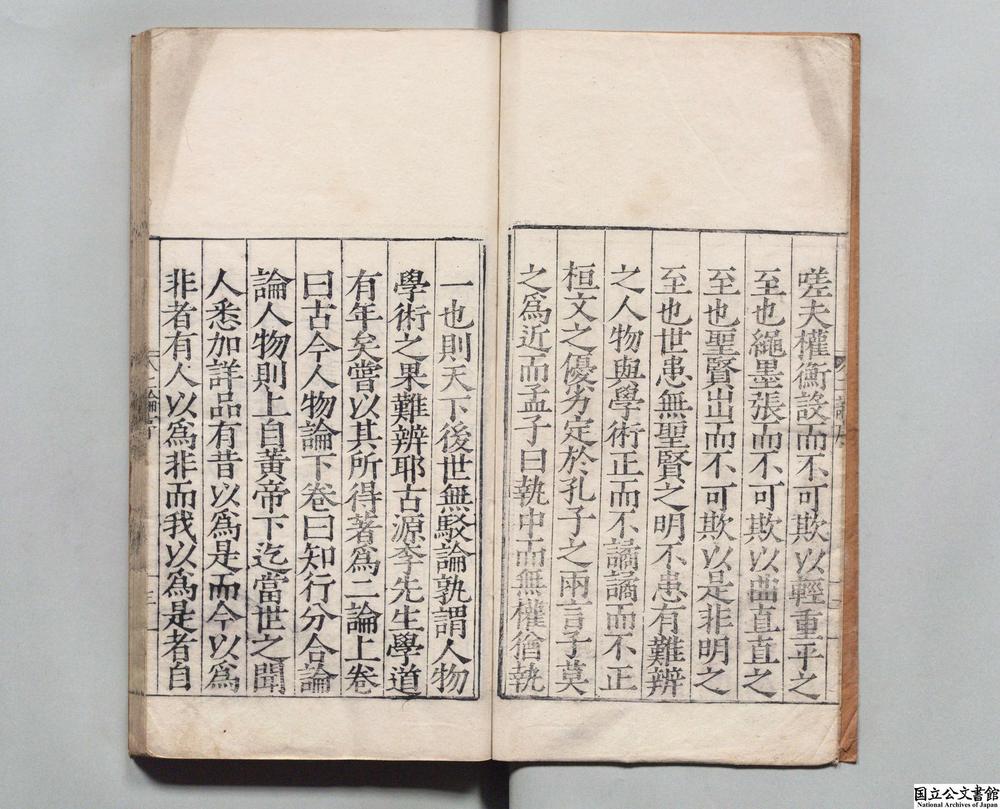 嗟夫權衡設而不可欺以輕重平之
至也繩墨張而不可欺以曲直直之
至也聖賢出而不可欺以是非明之
至也世患無聖賢之明不患有難辨
之人物與學術正而不譎譎而不正
桓文之優劣定於孔子之兩言子莫
之爲近而孟子曰執中而無權猶執
一也則天下後世無駁論孰謂人物
學術之果難辨耶古源李先生學道
有年矣嘗以其所得著爲二論上卷
曰古今人物論下卷曰知行分合論
論人物則上自黃帝下迄當世之聞
人悉加詳品有昔以爲是而今以爲
非者有人以爲非而我以爲是者自
国立公文書館
National Archives of Japan